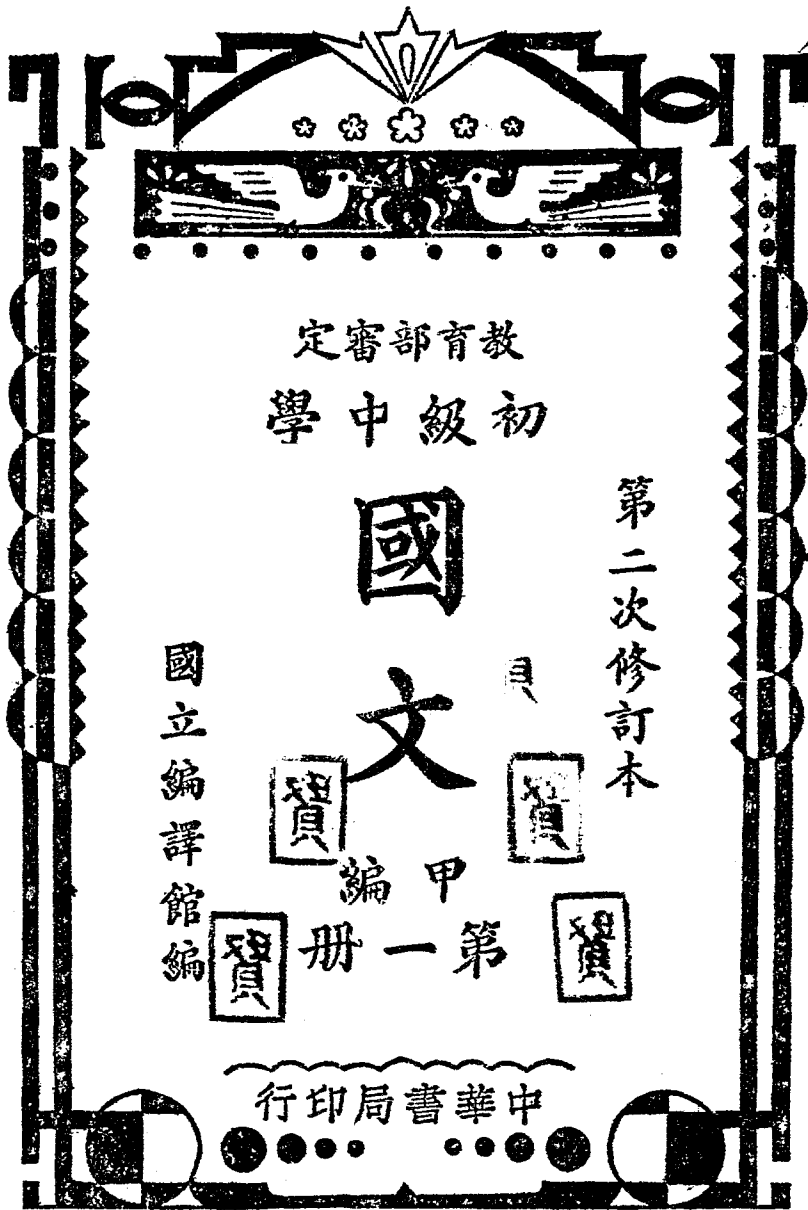 教育部審定
初級中學
第二次修訂本
國文
甲編
第一册
國立編譯館編
中華書局印行